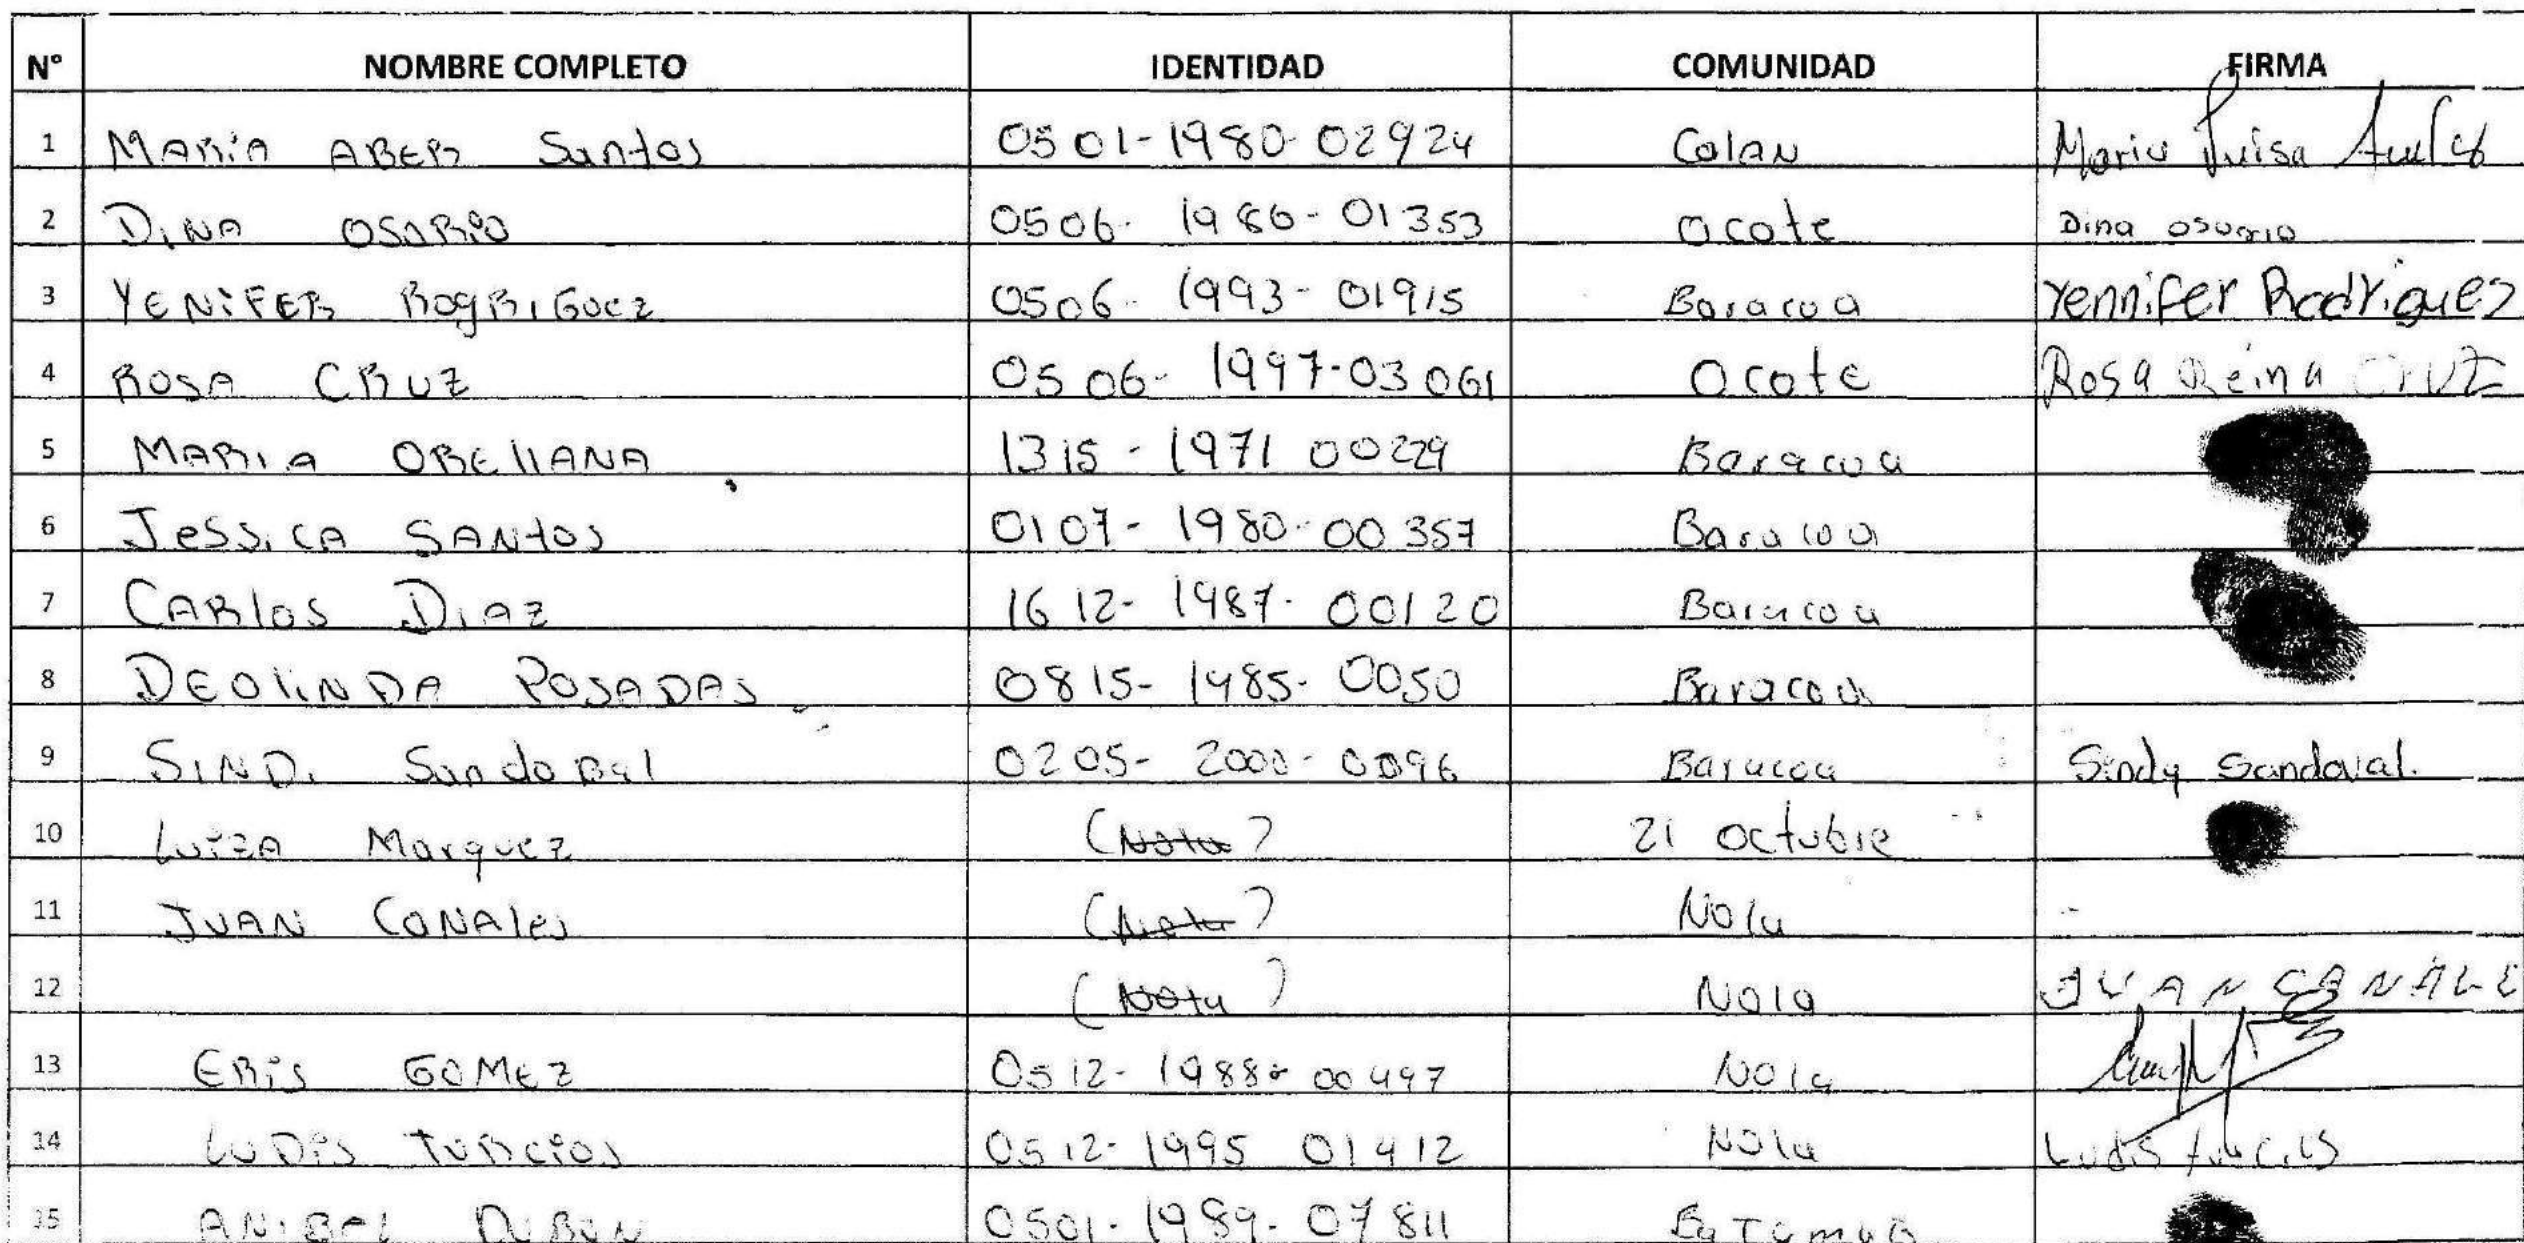 N° NOMBRE COMPLETO IDENTIDAD COMUNIDAD FIRMA
1 MARiA ABER Santos 0501-1980-02924 Colan Maria Luisa
2 DiNA OSORiO 0506-1986-01353 Ocote Dina osorio
3 YENiFER RogRiGuez 0506-1993-01915 Baracoa Yennifer Rodriguez
4 ROSA CRUZ 0506-1997-03061 Ocote Rosa Reina CruZ
5 MARiA OREllANA 1315-1971 00229 Baracoa
6 JeSSiCA SANtos 0107-1980-00357 Baracoa
7 CARlos DiAZ 1612-1987-00120 Baracoa
8 DEOliNDA POSADAS 0815-1985-0050 Baracoa
9 SiNDi Sandobal 0205-2000-0096 Baracoa Sindy Sandoval.
10 LuiZA Marquez 21 octubre
11 JUAN CANAles Nola
12 Nola JUAN CANALE
13 ERiS GOMEZ 0512-1988-00497 Nola
14 LuDiS TURCiOS 0512-1995 01412 Nola Ludis
15 ANiBEL DUBON 0501-1989-07811